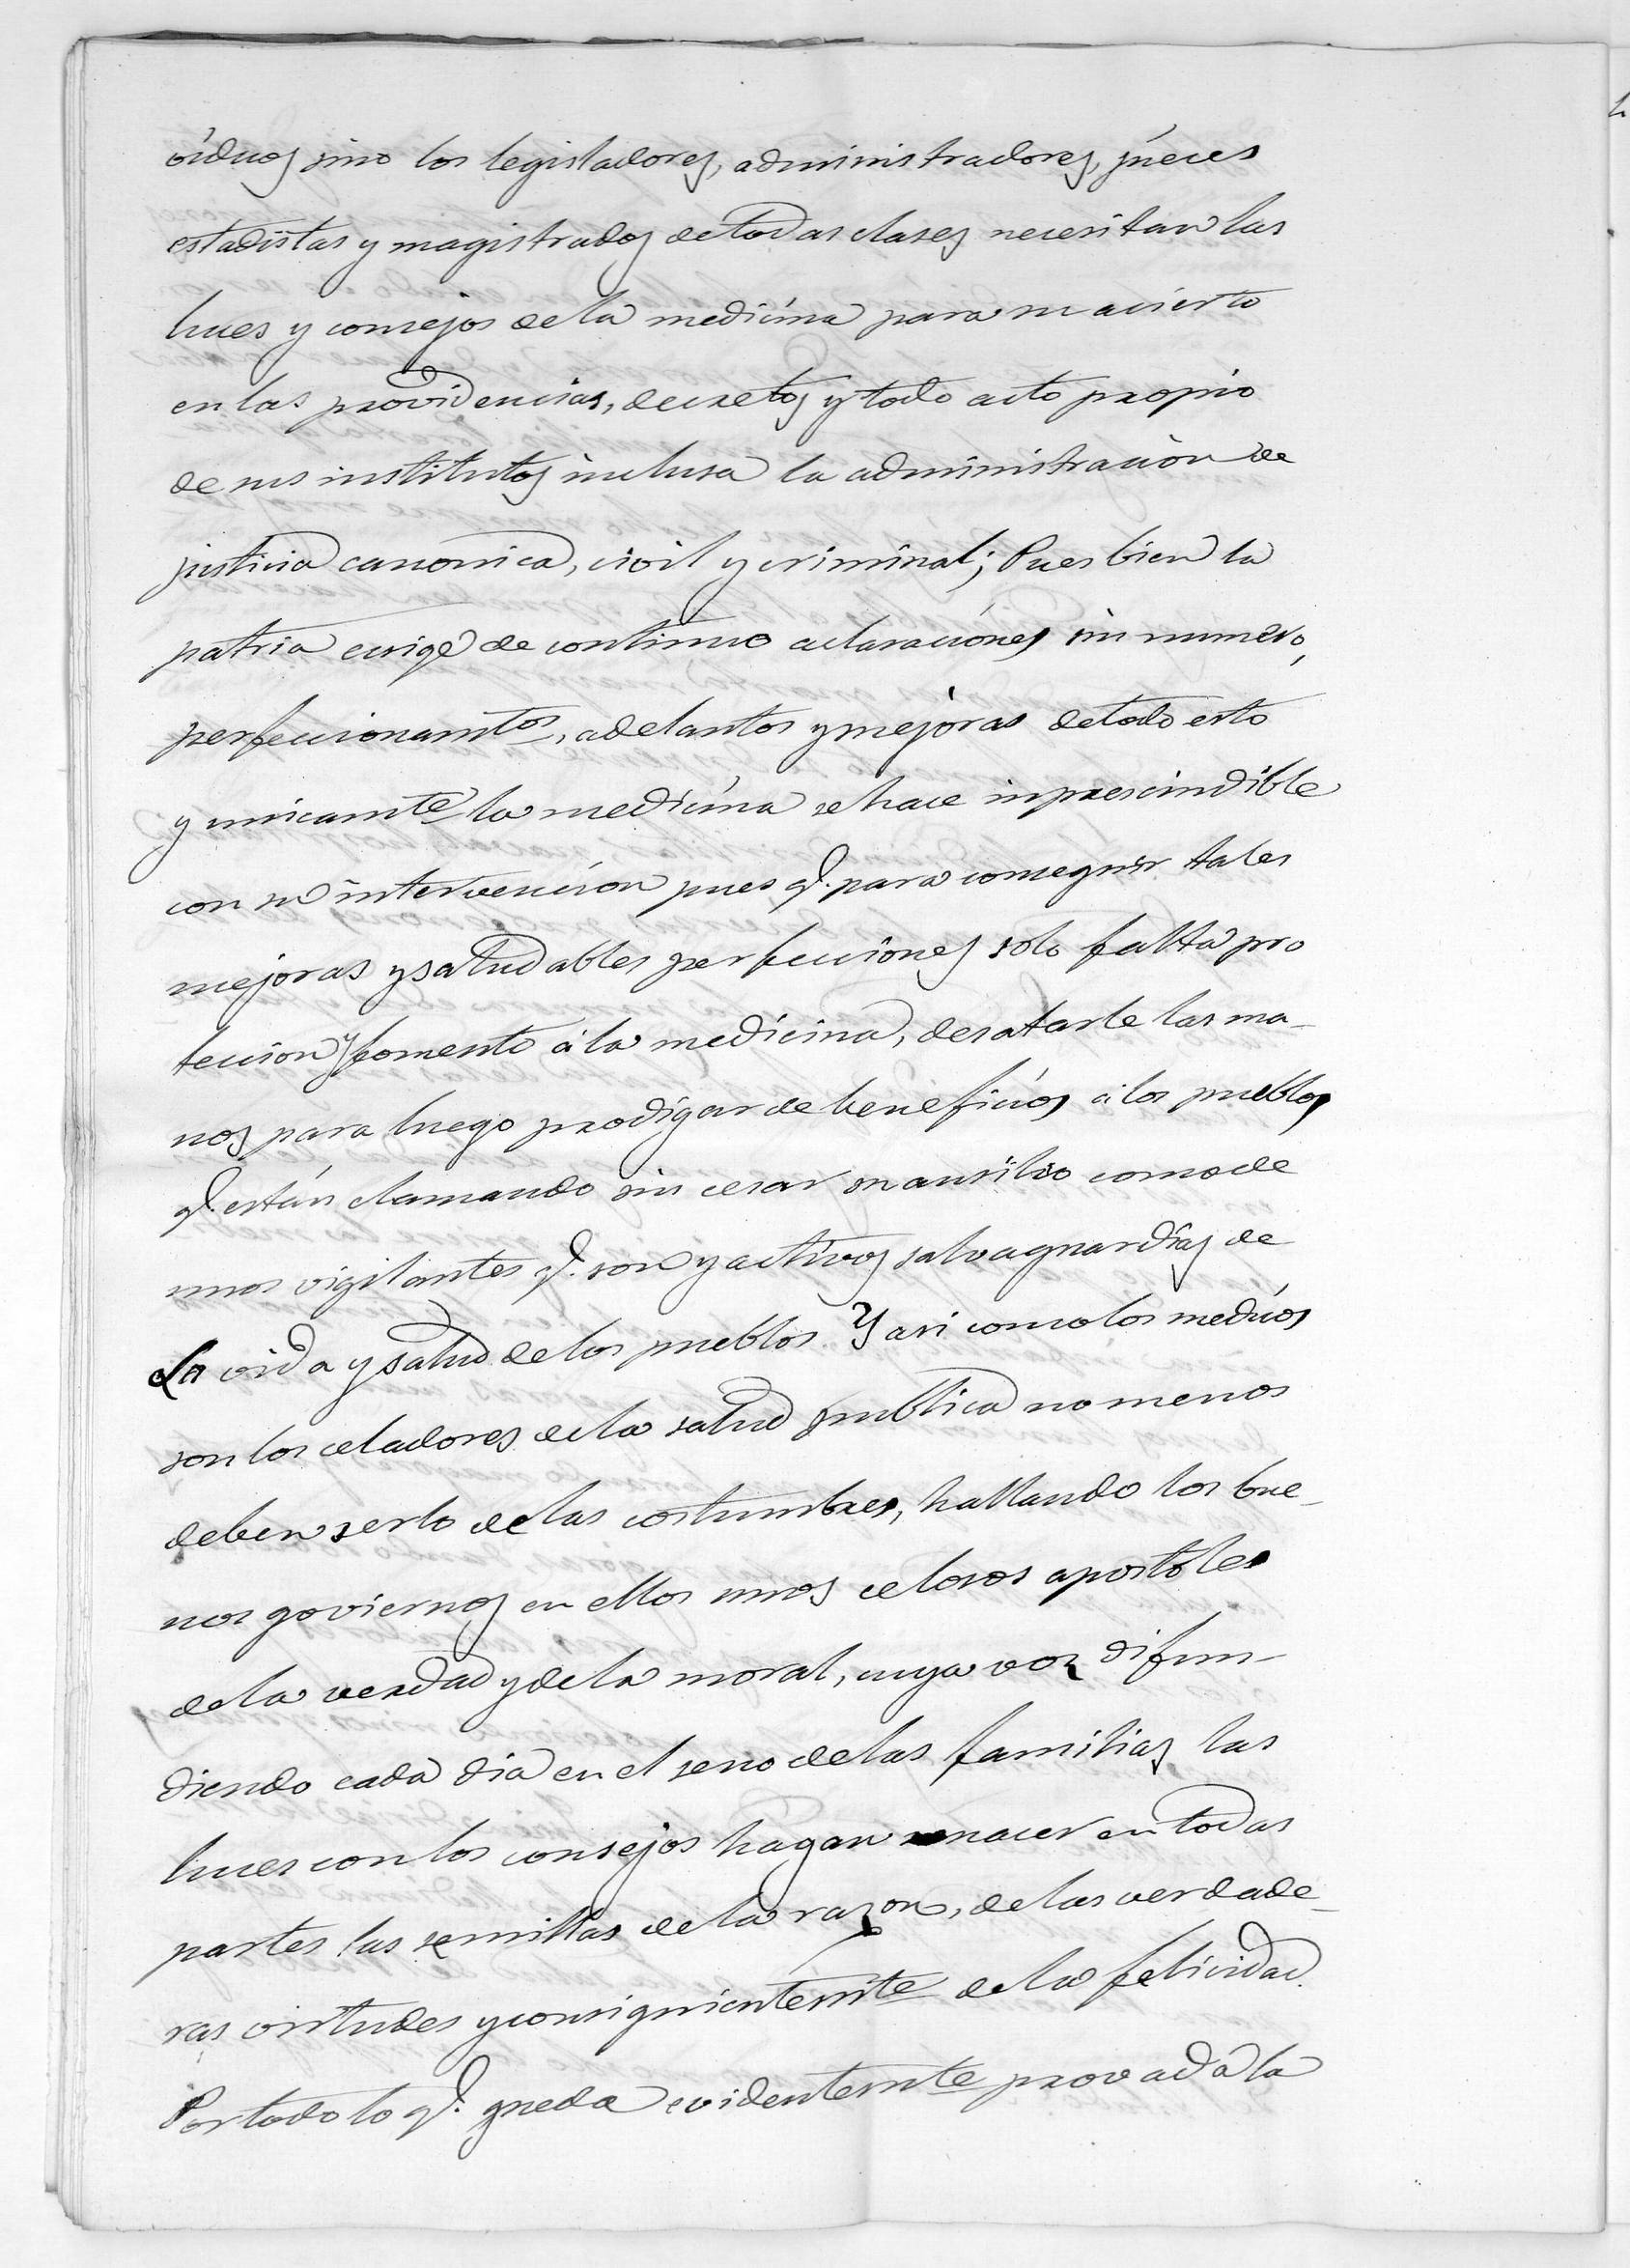 viduos sino los legisladores, administradores, júeces
estadistas y magistrados de todas clases necesitan las
luces y consejos de la medicína para su acierto
en las providencias, decretos y todo acto propio
de sus institutos inclusa la administración de
justicia canonica, civil y criminal; Pues bien la
patria exige de continuo aclaraciónes sin numero,
perfeccionamtos, adelantos y mejoras de todo esto
y unicamte la medicína se hace inprescindible
con su intervención pues q. para conseguir tales
mejoras y saludables perfecciones solo falta pro
teccion y fomento á la medicina, desatarle las ma-
nos para luego prodigar de beneficíos á los pueblos
q. están clamando sin cesar su ausilio como de
unos vigilantes q. son y activos salvaguardias de
La vida y salud de los pueblos. Y asi como los medícos
son los celadores de la salud publica no menos
deben serlo de las costumbres, hallando los bue-
nos goviernos en ellos unos celosos apostoles
de la verdad y de la moral, cuya voz difun-
diendo cada dia en el seno de las familias las
luces con los consejos hagan renacer en todas
partes las semillas de la razon, de las verdade-
ras virtudes y consiguientemte de la felicidad.
Por todo lo q. queda evidentemte provada la